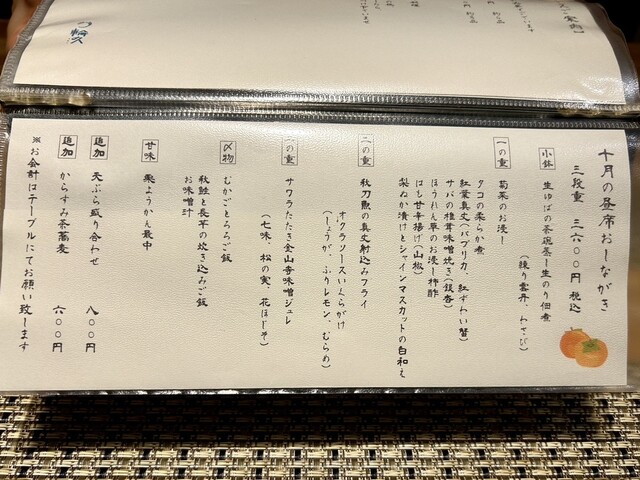 十月の昼席おしながき
三段重 三六〇〇円 税込
小鉢
生ゆばの茶碗蒸し生のり佃煮
(練り雲丹、わさび)
一の重
菊菜のお浸し
タコの柔らか煮
紅葉真丈(パプリカ、紅ずわい蟹)
サバの椎茸味噌焼き(銀杏)
ほうれん草のお浸し柿酢
はも甘辛揚げ(山椒)
梨ぬか漬けとシャインマスカットの白和え
二の重
秋刀魚の真丈射込みフライ
オクラソースいくらがけ
(しょうが、ふりレモン、むらめ)
三の重
サワラたたき金山寺味噌ジュレ
(七味、松の実、花ほじそ)
〆物
むかごとろろご飯
秋鮭と長芋の炊き込みご飯
お味噌汁
甘味
栗ようかん最中
追加 天ぷら盛り合わせ 八〇〇円
追加 からすみ茶蕎麦 六〇〇円
※お会計はテーブルにてお願い致します